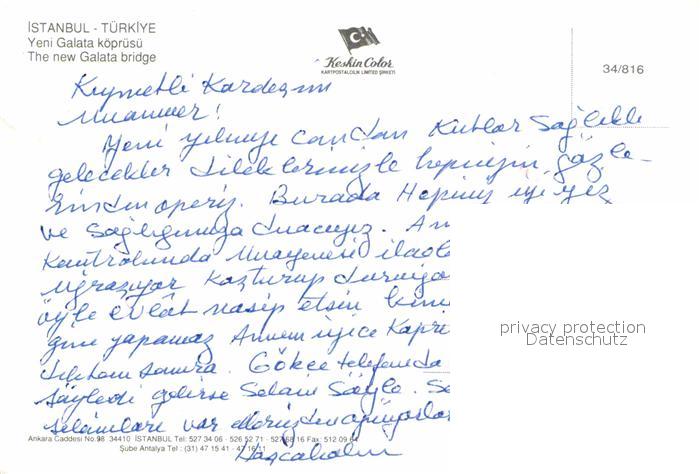 İSTANBUL - TÜRKİYE
Yeni Galata köprüsü
The new Galata bridge
Keskin Color
KARTPOSTALCILIK LIMITED ŞİRKETİ
34/816
Kıymetli Kardeşim
Muammer!
Yeni yılınızı candan Kutlar Sağlıklı
gelecekler dileklerimizle hepinizin gözle-
rinden öperiz. Burada Hepimiz iyiyiz
ve sağlığınıza duacıyız. An
Kontrolunda Muayenesi ilaçla
uğraşıyor
öyle evlât nasip etsin kim
yapamaz Annem iyice Kapri
sonra. Gökçe telefonda
söyledi gelirse Selam Söyle. Se
selamları var
privacy protection
Datenschutz
Ankara Caddesi No.98 34410 İSTANBUL Tel: 527 34 06 - 526 52 71 - 527 68 16 Fax: 512 09 64
Şube Antalya Tel : (31) 47 15 41 - 47 16 11
Hoşçakalın